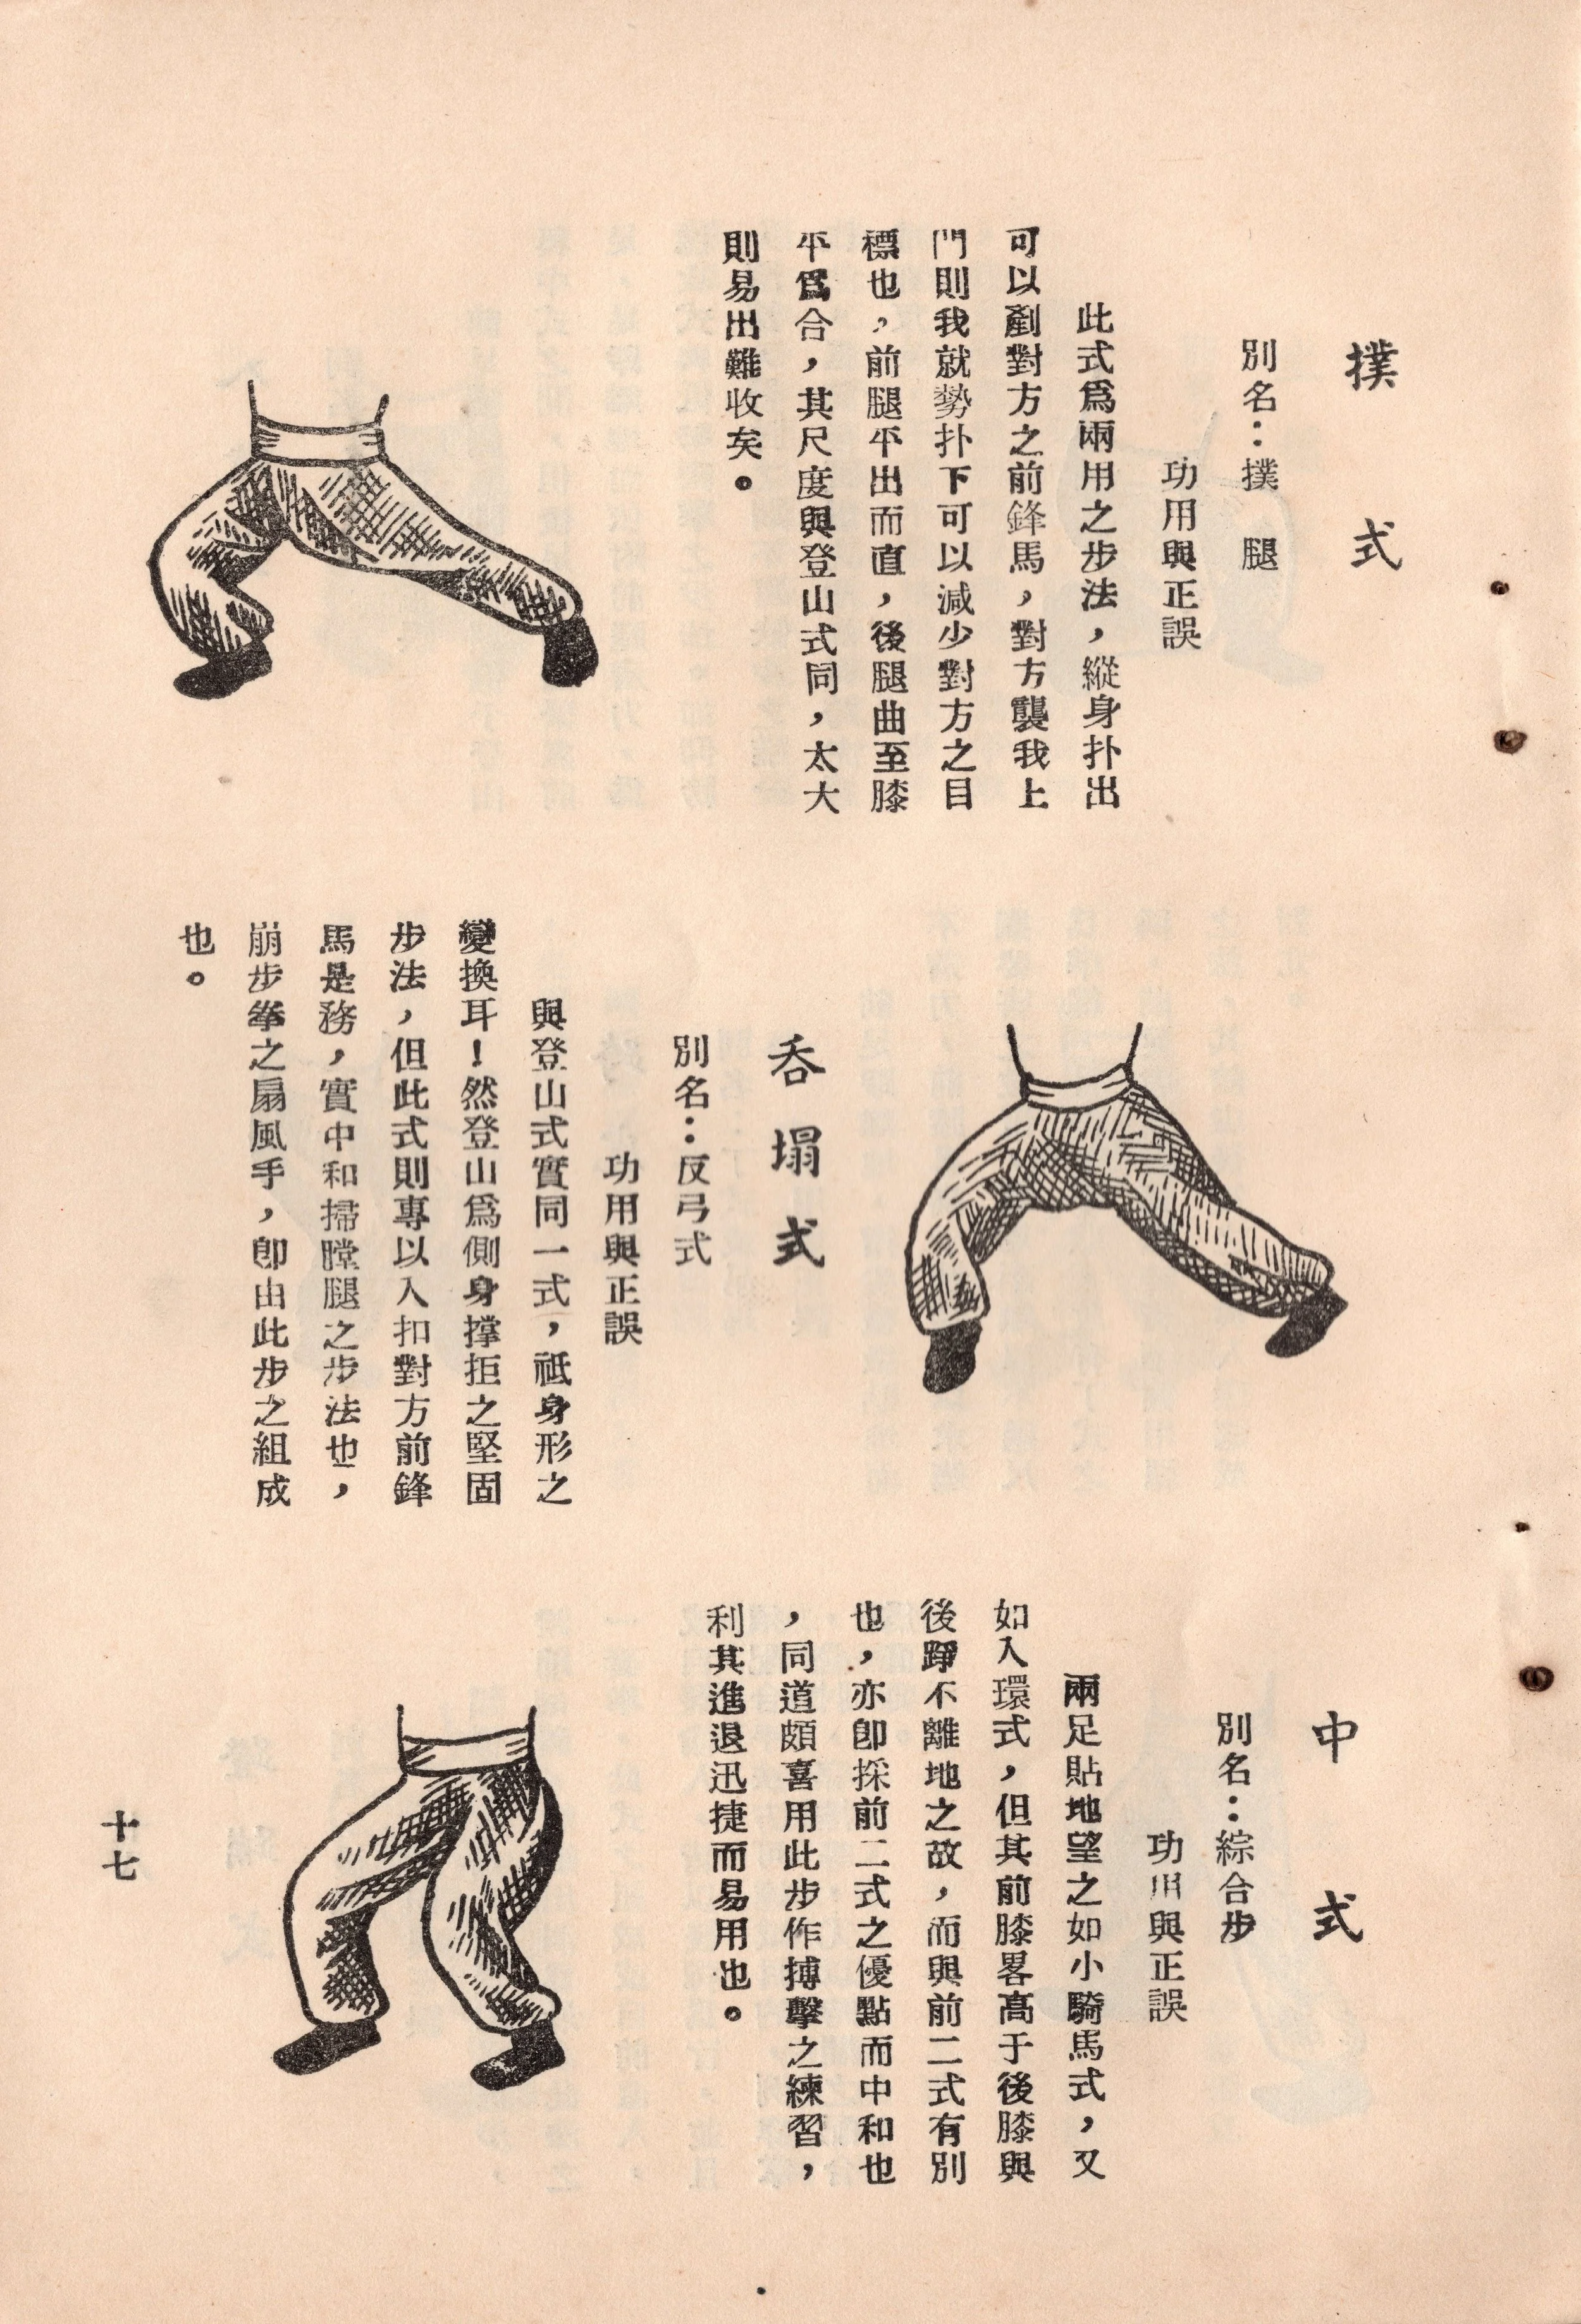 撲式
別名：撲腿
功用與正誤
此式爲兩用之步法，縱身扑出
可以剷對方之前鋒馬，對方襲我上
門則我就勢扑下可以減少對方之目
標也，前腿平出而直，後腿曲至膝
平爲合，其尺度與登山式同，太大
則易出難收矣。
吞塌式
別名：反弓式
功用與正誤
與登山式實同一式，祗身形之
變換耳！然登山爲側身撑拒之堅固
步法，但此式則專以入扣對方前鋒
馬是務，實中和掃膛腿之步法也，
崩步拳之扇風手，卽由此步之組成
也。
中式
別名：綜合步
功用與正誤
兩足貼地望之如小騎馬式，又
如入環式，但其前膝畧高于後膝與
後踭不離地之故，而與前二式有別
也，亦卽採前二式之優點而中和也
，同道頗喜用此步作搏擊之練習，
利其進退迅捷而易用也。
十七